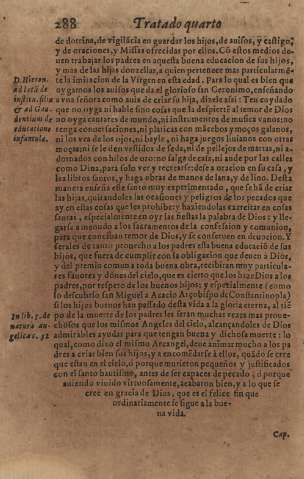 288 Tratado quarto
de dotrina, de vigilãcia en guardar los hijos, de auisos, y castigo,
y de oraciones, y Missas ofrecidas por ellos. Cõ estos medios de-
uen trabajar los padres en aquesta buena educacion de sus hijos,
y mas de las hijas donzellas, a quien pertenece mas particularmē-
te la imitacion de la Virgen en esta edad. Para lo qual es bien que
D. Hieron.
oygamos los auisos que da el glorioso san Geronimo, enseñando
ad Letã de
a vna señora como auia de criar su hija, dizele assi: Ten cuydado
instit. filiæ
que no oyga ni hable sino cosa que la despierte al temor de Dios
& ad Gau
no oyga cantares de mundo, ni instrumentos de musica vanos: no
dentium de
tenga conuersaciones, ni platicas con mācebos y moços galanos,
educatione
ni los vea de los ojos, ni bayle, ni haga juegos liuianos con otras
infantulæ.
moças: ni se le den vestidos de seda, ni de pellejos de martas, ni a-
dornados con hilos de oro: no salga de casa, ni ande por las calles
como Dina, para solo ver y recrearse: dese a oracion en su casa, y
lea libros santos, y haga obras de manos de lana, y de lino. Desta
manera enseña este santo muy experimentado, que se hã de criar
las hijas, quitandoles las ocasiones y peligros de los pecados que
ay en estas cosas que les prohibe: y haziendolas exercitar en cosas
santas, especialmente en oyr las fiestas la palabra de Dios: y lle-
garse a menudo a los sacramentos de la confession y comunion,
para que conciban temor de Dios, y se conseruen en deuocion. Y
serales de tanto prouecho a los padres esta buena educaciõ de sus
hijos, que fuera de cumplir con la obligacion que deuen a Dios,
y del premio comun a toda buena obra, recibiran muy particula-
res fauores y dones del cielo, que es cierto que los haze Dios a los
padres, por respeto de los buenos hijos: y especialmente (como
lo descubrio san Miguel a Azacio Arçobispo de Constantinopla)
si los hijos buenos han passado desta vida a la gloria eterna, al tiē
In lib. 5. de
po de la muerte de los padres les seran muchas vezes mas proue-
natura an-
chosos que los mismos Angeles del cielo, alcançandoles de Dios
gelica c. 32
admirables ayudas para que tengan buena y dichosa muerte: lo
qual, como dixo el mismo Arcangel, deue animar mucho a los pa
dres a criar bien sus hijos, y a encomēdarse à ellos, quãdo se cree
que estan en el cielo, ó porque murieron pequeños y justificados
con el santo bautismo, antes de ser capaces de pecado, ó porque
auiendo viuido virtuosamente, acabaron bien, y a lo que se
cree en gracia de Dios, que es el felice fin que
ordinariamente se sigue a la bue-
na vida.
Cap.